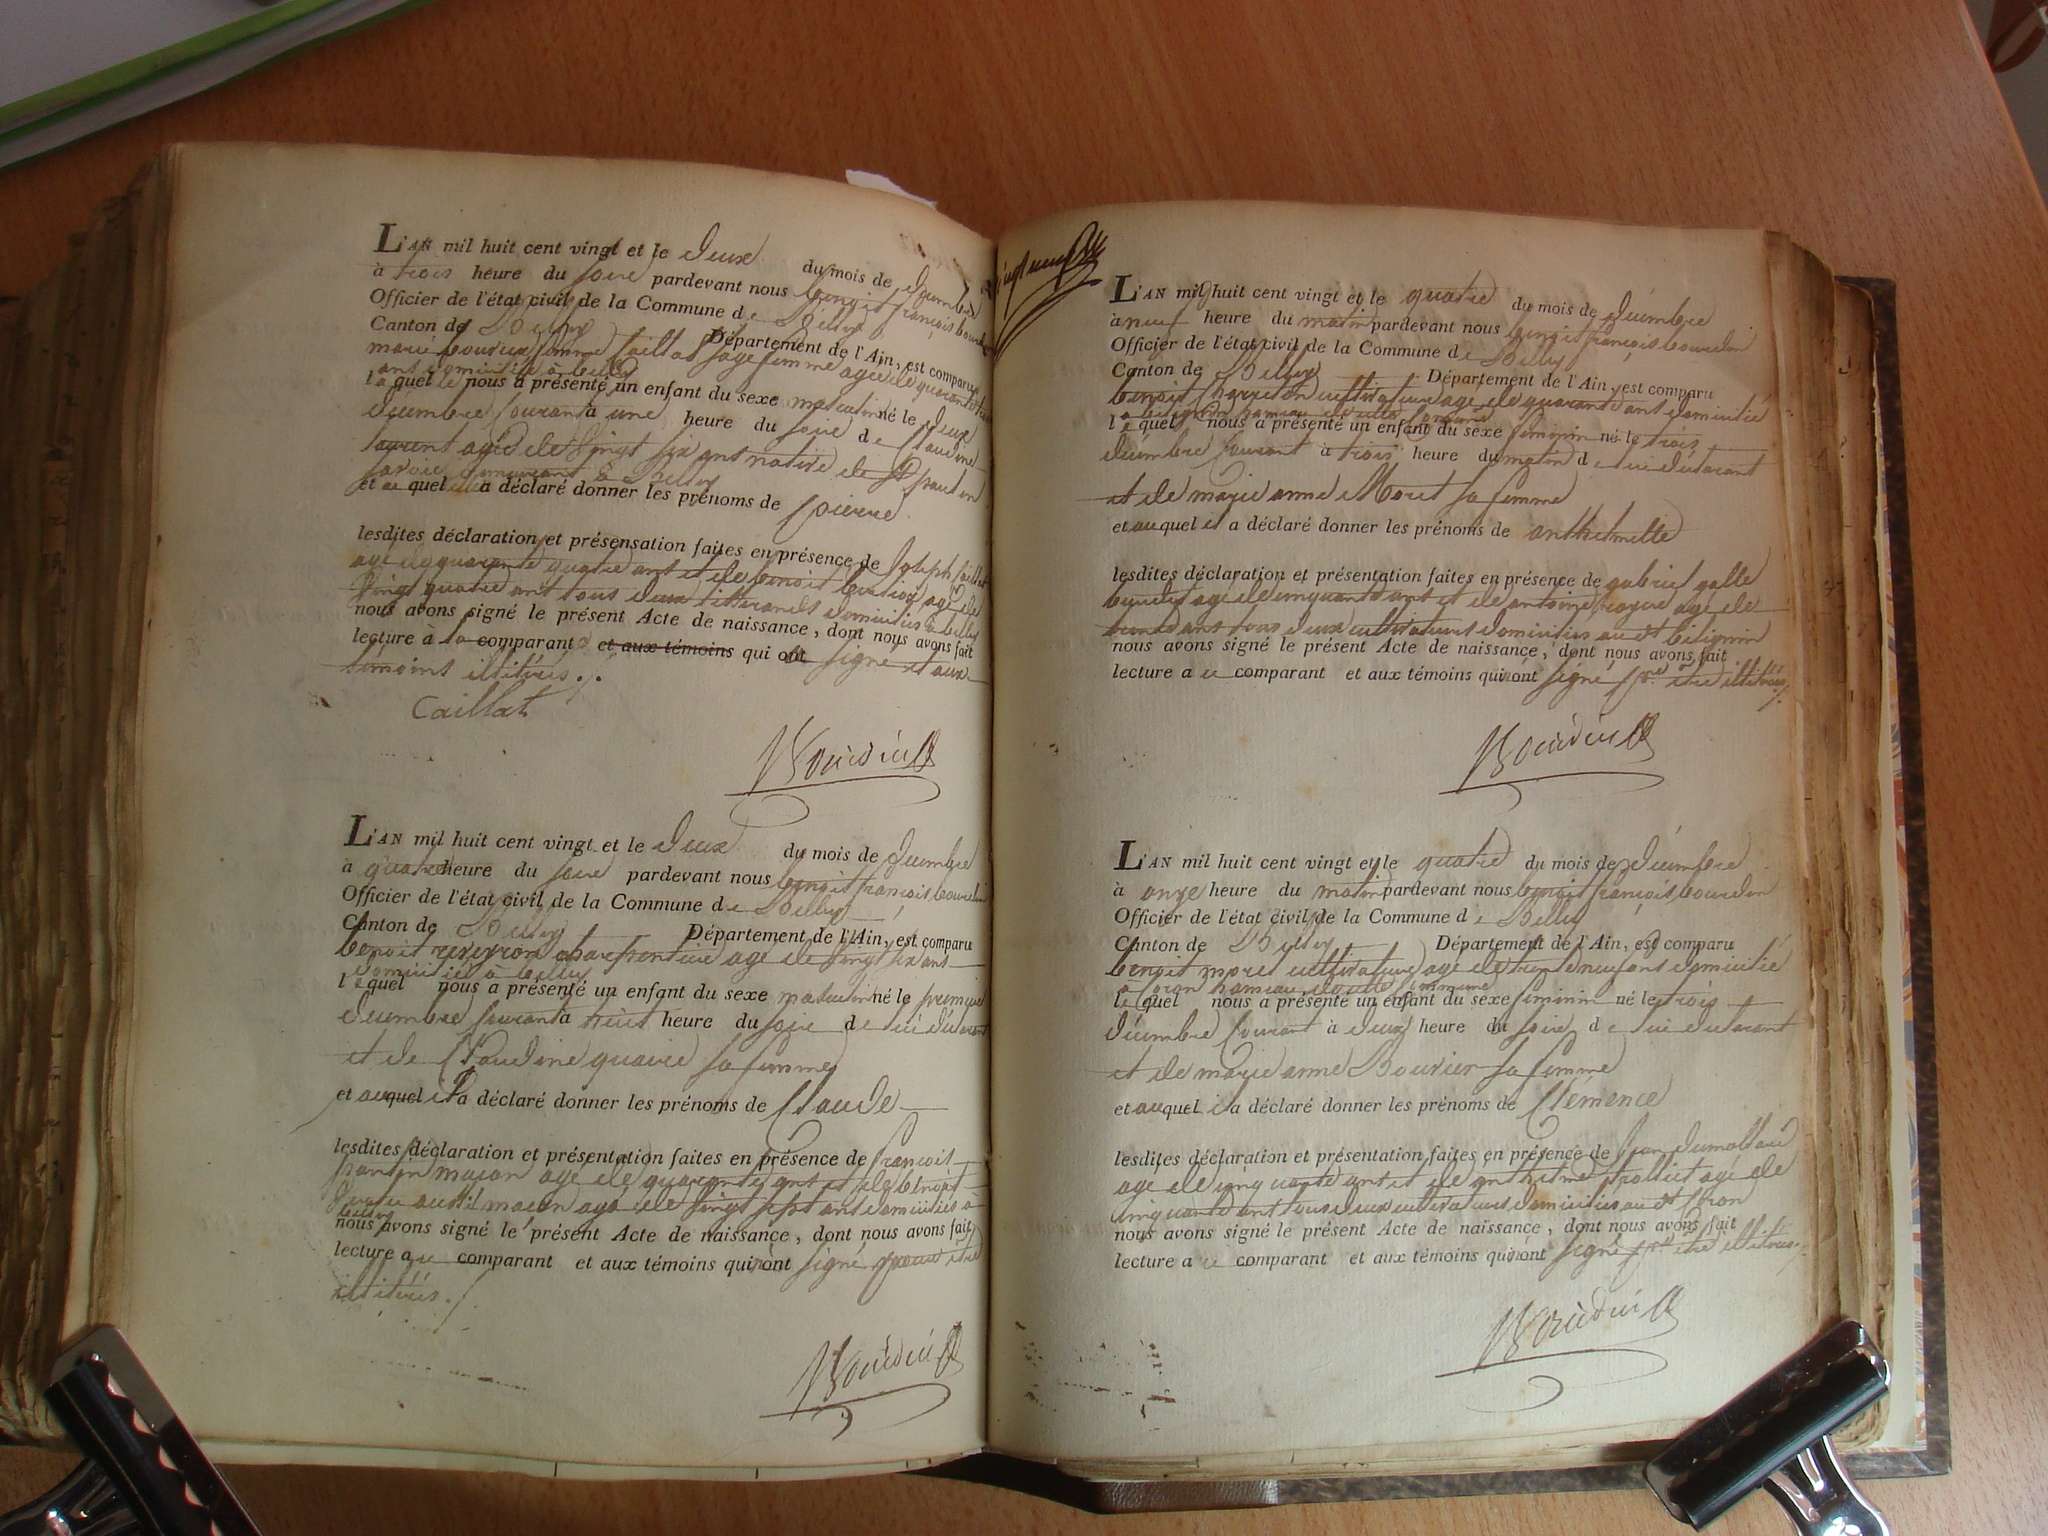 L'AN mil huit cent vingt et le deux du mois de décembre
à trois heure du soir pardevant nous benoit françois bourdin
Officier de l'état civil de la Commune de Belley
Canton de Belley Département de l'Ain, est comparu
marie femme Caillat sage femme agée de quarante
ans domiciliée à belley
laquelle nous a présenté un enfant du sexe masculin né le deux
décembre Courant à une heure du soir de Claudine
laurent agée de vingt six ans native de
savoie demeurant à Belley
et au quel elle a déclaré donner les prénoms de pierre
lesdites déclaration et présensation faites en présence de Joseph Caillat
agé de quarante quatre ans et de benoit agé de
vingt quatre ans tous deux tisserands domiciliés à belley
nous avons signé le présent Acte de naissance, dont nous avons fait
lecture à la comparante et aux témoins qui ont signé et aux
temoins illitérés ./.
Caillat
Bourdin
L'AN mil huit cent vingt et le deux du mois de décembre
à quatre heure du soir pardevant nous benoit françois bourdin
Officier de l'état civil de la Commune de Belley
Canton de Belley Département de l'Ain, est comparu
benoit reveyron charpentier agé de vingt six ans
domicilié à belley
lequel nous a présenté un enfant du sexe masculin né le premier
décembre Courant à huit heure du soir de lui déclarant
et de Claudine quavie sa femme
et auquel il a déclaré donner les prénoms de Claude
lesdites déclaration et présentation faites en présence de françois
maçon agé de quarante ans et de benoit
aussi maçon agé de vingt sept ans domiciliés à
belley
nous avons signé le présent Acte de naissance, dont nous avons fait
lecture a ce comparant et aux témoins qui n'ont signé pour être
illitérés ./.
Bourdin
vingt neuf
L'AN mil huit cent vingt et le quatre du mois de décembre
à neuf heure du matin pardevant nous benoit françois bourdin
Officier de l'état civil de la Commune de Belley
Canton de Belley Département de l'Ain, est comparu
benoit cultivateur agé de quarante ans domicilié
a billignin hameau de cette Commune
lequel nous a présenté un enfant du sexe feminin né le trois
décembre Courant à trois heure du matin de lui déclarant
et de marie anne Moret sa femme
et auquel il a déclaré donner les prénoms de anthelmette
lesdites déclaration et présentation faites en présence de gabriel galle
agé de cinquante ans et de antoine agé de
trente ans tous deux cultivateurs domiciliés au dt billignin
nous avons signé le présent Acte de naissance, dont nous avons fait
lecture a ce comparant et aux témoins qui n'ont signé pr être illitérés ./.
Bourdin
L'AN mil huit cent vingt et le quatre du mois de décembre
à onze heure du matin pardevant nous benoit françois bourdin
Officier de l'état civil de la Commune de Belley
Canton de Belley Département de l'Ain, est comparu
benoit moret cultivateur agé de trente neuf ans domicilié
a Coron hameau de cette Commune
lequel nous a présenté un enfant du sexe feminin né le trois
décembre Courant à deux heure du soir de lui déclarant
et de marie anne Bouvier sa femme
et auquel il a déclaré donner les prénoms de Clémence
lesdites déclaration et présentation faites en présence de Jean dumollard
agé de cinquante ans et de anthelme trolliet agé de
cinquante ans tous deux cultivateurs domiciliés au dt Coron
nous avons signé le présent Acte de naissance, dont nous avons fait
lecture a ce comparant et aux témoins qui n'ont signé pr être illitérés ./.
Bourdin